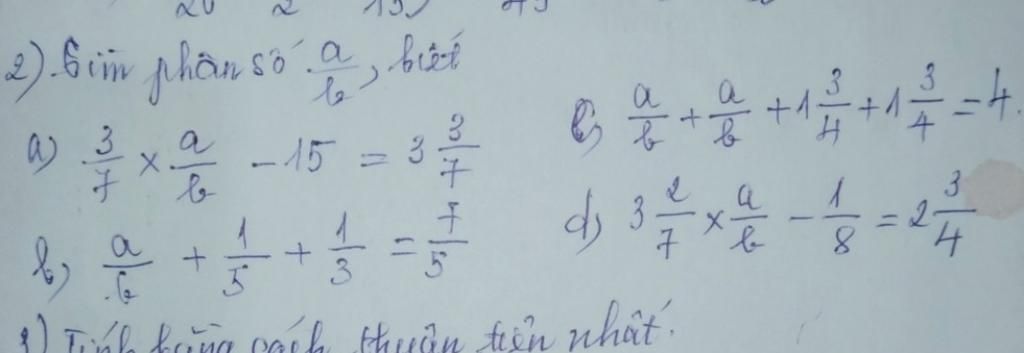 2) Tìm phân số a/b, biết
a) 3/7 × a/b - 15 = 3 3/7
b) a/b + 1/5 + 1/3 = 7/5
c) a/b + a/b + 1 3/4 + 1 3/4 = 4.
d) 3 2/7 × a/b - 1/8 = 2 3/4
3) Tính bằng cách thuận tiện nhất.